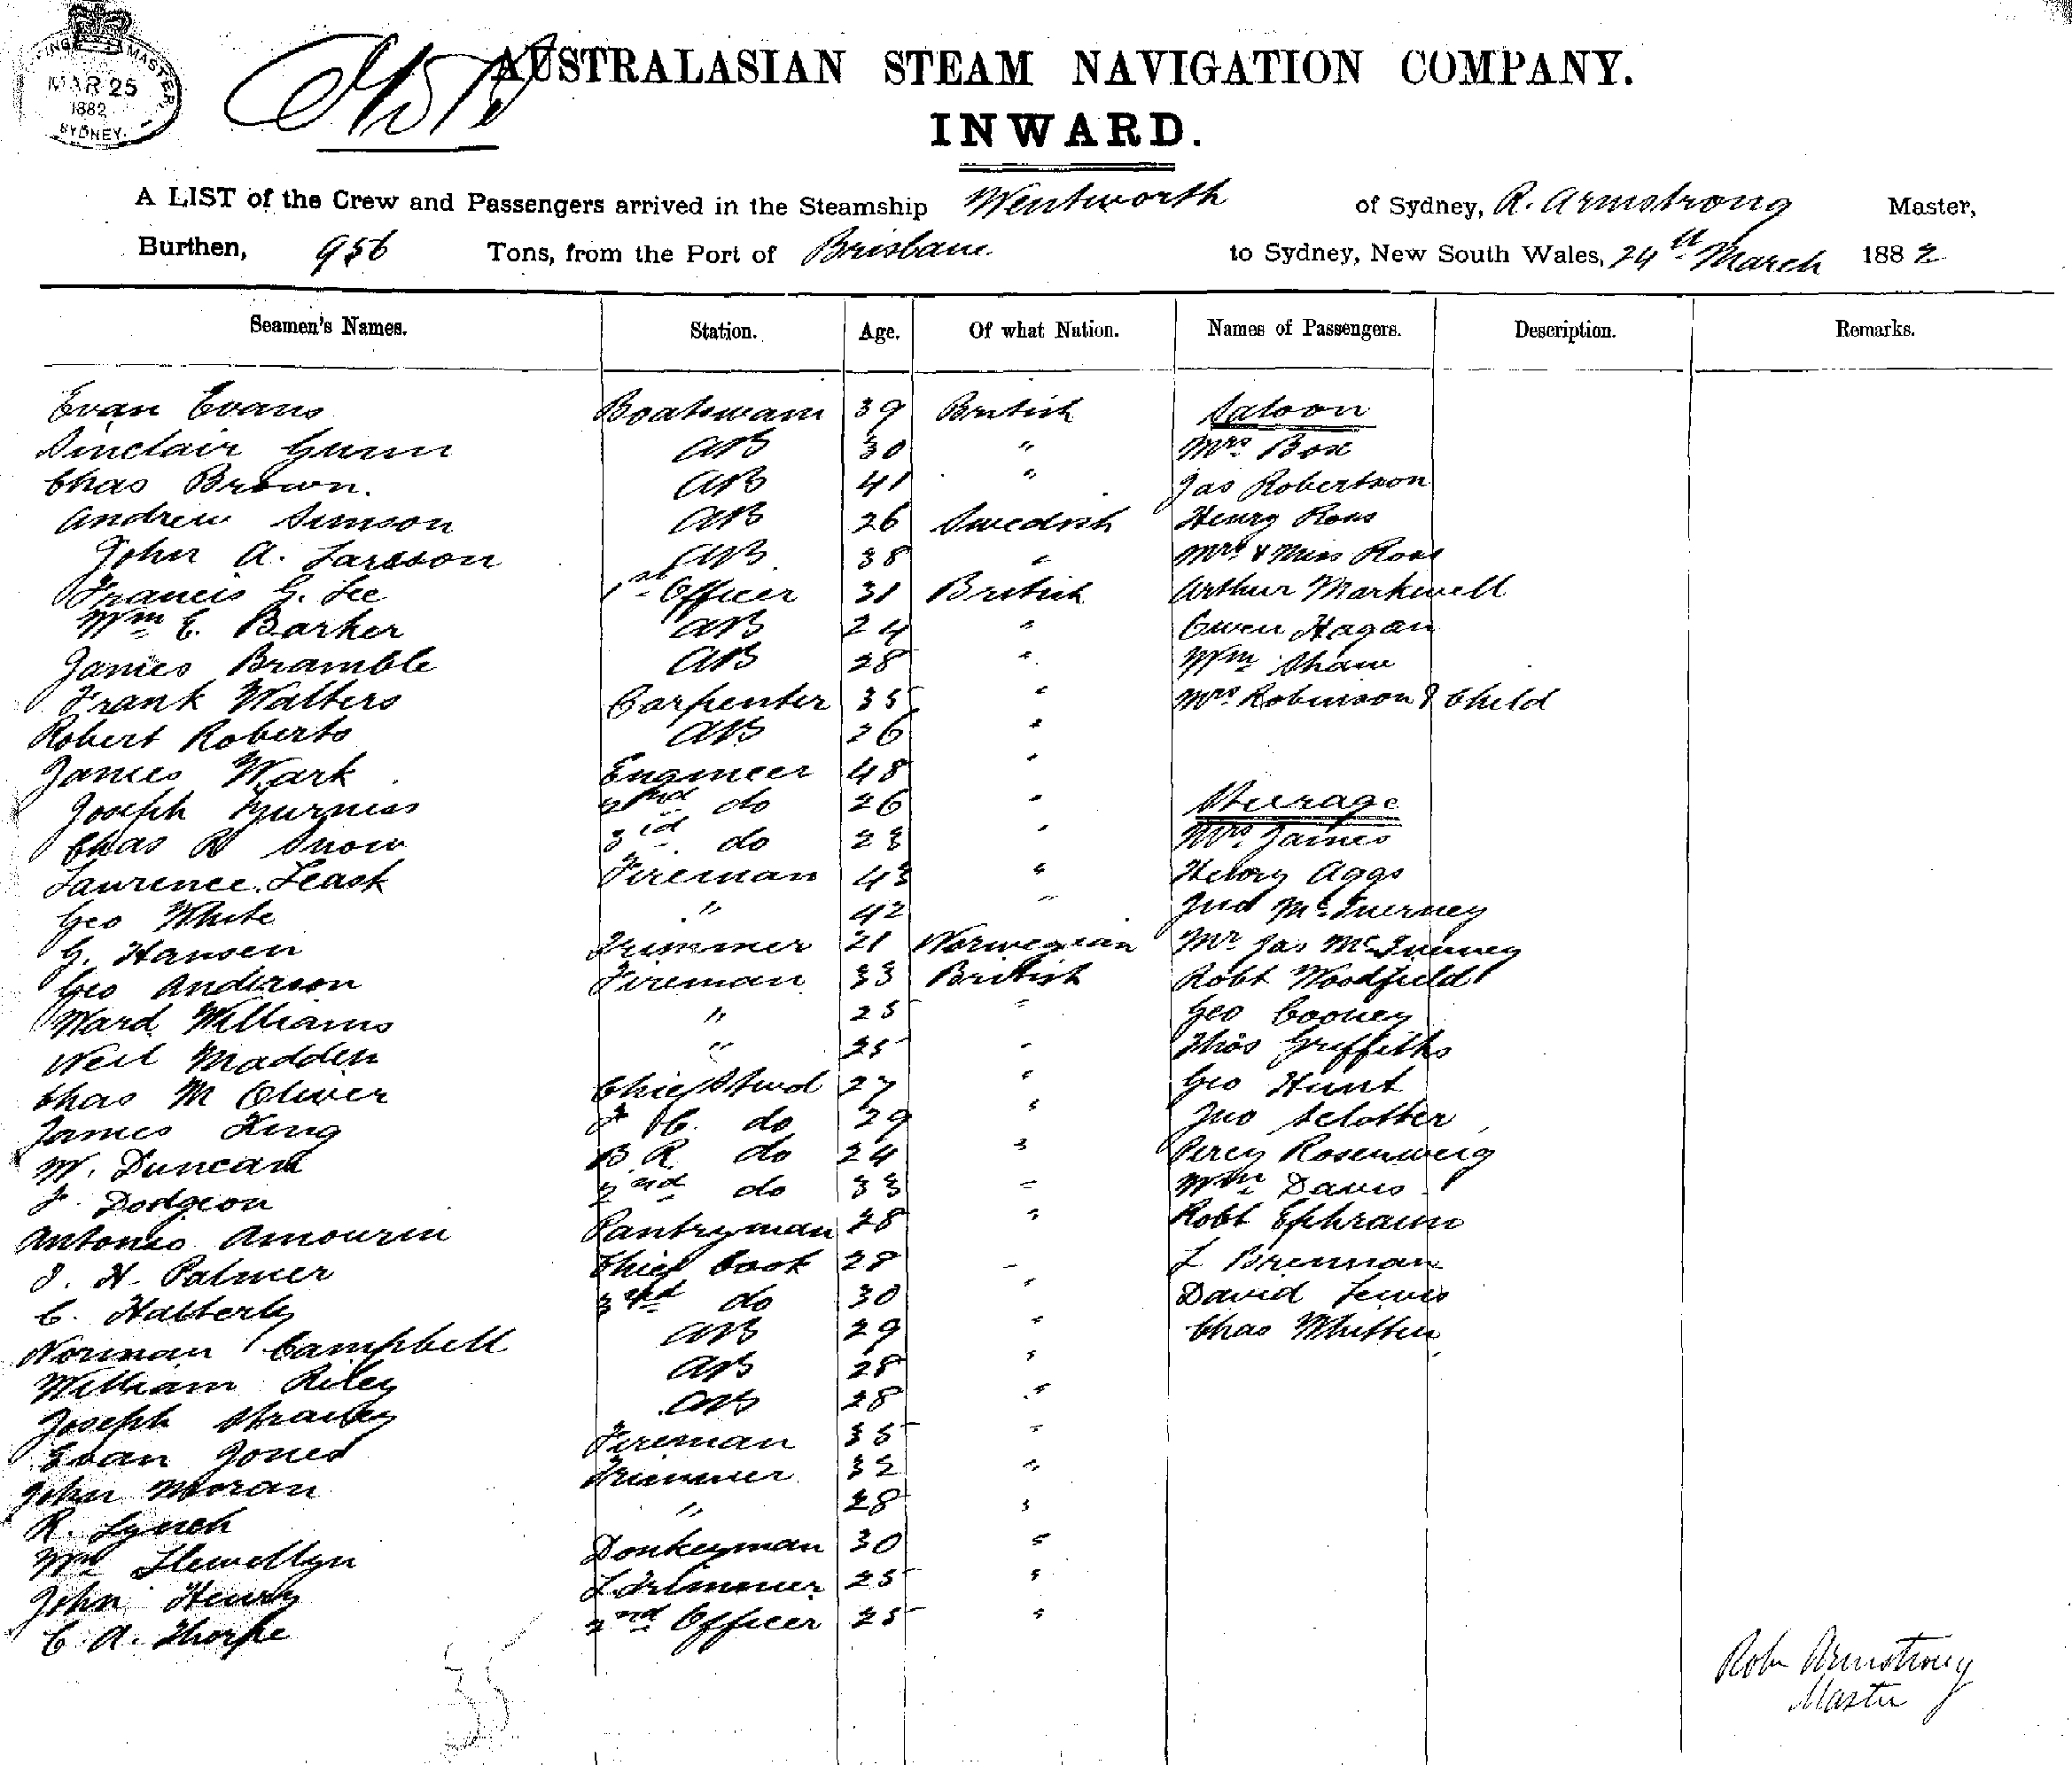 SHIPPING MASTER
MAR 25
1882
SYDNEY.
AUSTRALASIAN STEAM NAVIGATION COMPANY.
INWARD.
A LIST of the Crew and Passengers arrived in the Steamship Wentworth of Sydney, R. Armstrong Master,
Burthen, 956 Tons, from the Port of Brisbane to Sydney, New South Wales, 24th March 1882
Seamen's Names. Station. Age. Of what Nation. Names of Passengers. Description. Remarks.
Evan Evans Boatswain 39 British Saloon
Sinclair Gunn AB 30 " Mrs. Box
Chas Brown. AB 41 " Jas Robertson
Andrew Simson AB 26 Swedish Henry Ross
John A. Larsson AB 38 " Mrs & Miss Ross
Francis G. Lee 1st Officer 31 British Arthur Markwell
Wm E. Barker AB 24 " Owen Hagan
James Bramble AB 28 " Wm Shaw
Frank Walters Carpenter 35 " Mrs Robinson & Child
Robert Roberts AB 26 "
James Wark Engineer 48 "
Joseph Furniss 2nd do 26 " Steerage
Chas R Snow 3rd do 23 " Mrs. James
Laurence Leask Fireman 43 " Henry Aggs
Geo White " 42 " Jno McInerney
G. Hansen Trimmer 21 Norwegian Mr Jas McInerney
Geo Anderson Fireman 33 British Robt Woodfield
Ward Williams " 25 " Geo Cooney
Neil Madden " 25 " Thos Griffiths
Chas M Oliver Chief Stwd 27 " Geo Hunt
James King F C. do 29 " Jno Selotter
W. Duncan B.R. do 24 " Percy Rosenweig
J. Dodgeon 2nd do 33 " Wm Davis
Antonio Amourin Pantryman 28 " Robt Ephraim
J. H. Palmer Chief Cook 28 " L Brennan
C. Halberty 2nd do 30 " David Lewis
Norman Campbell AB 29 " Chas Whitten
William Riley AB 28 "
Joseph AB 28 "
Evan Jones Fireman 35 "
John Moran Trimmer 32 "
R. Lynch " 28 "
Wm Llewellyn Donkeyman 30 "
John Henry Trimmer 25 "
C. A. Thorpe 2nd Officer 25 "
35
Robt Armstrong
Master